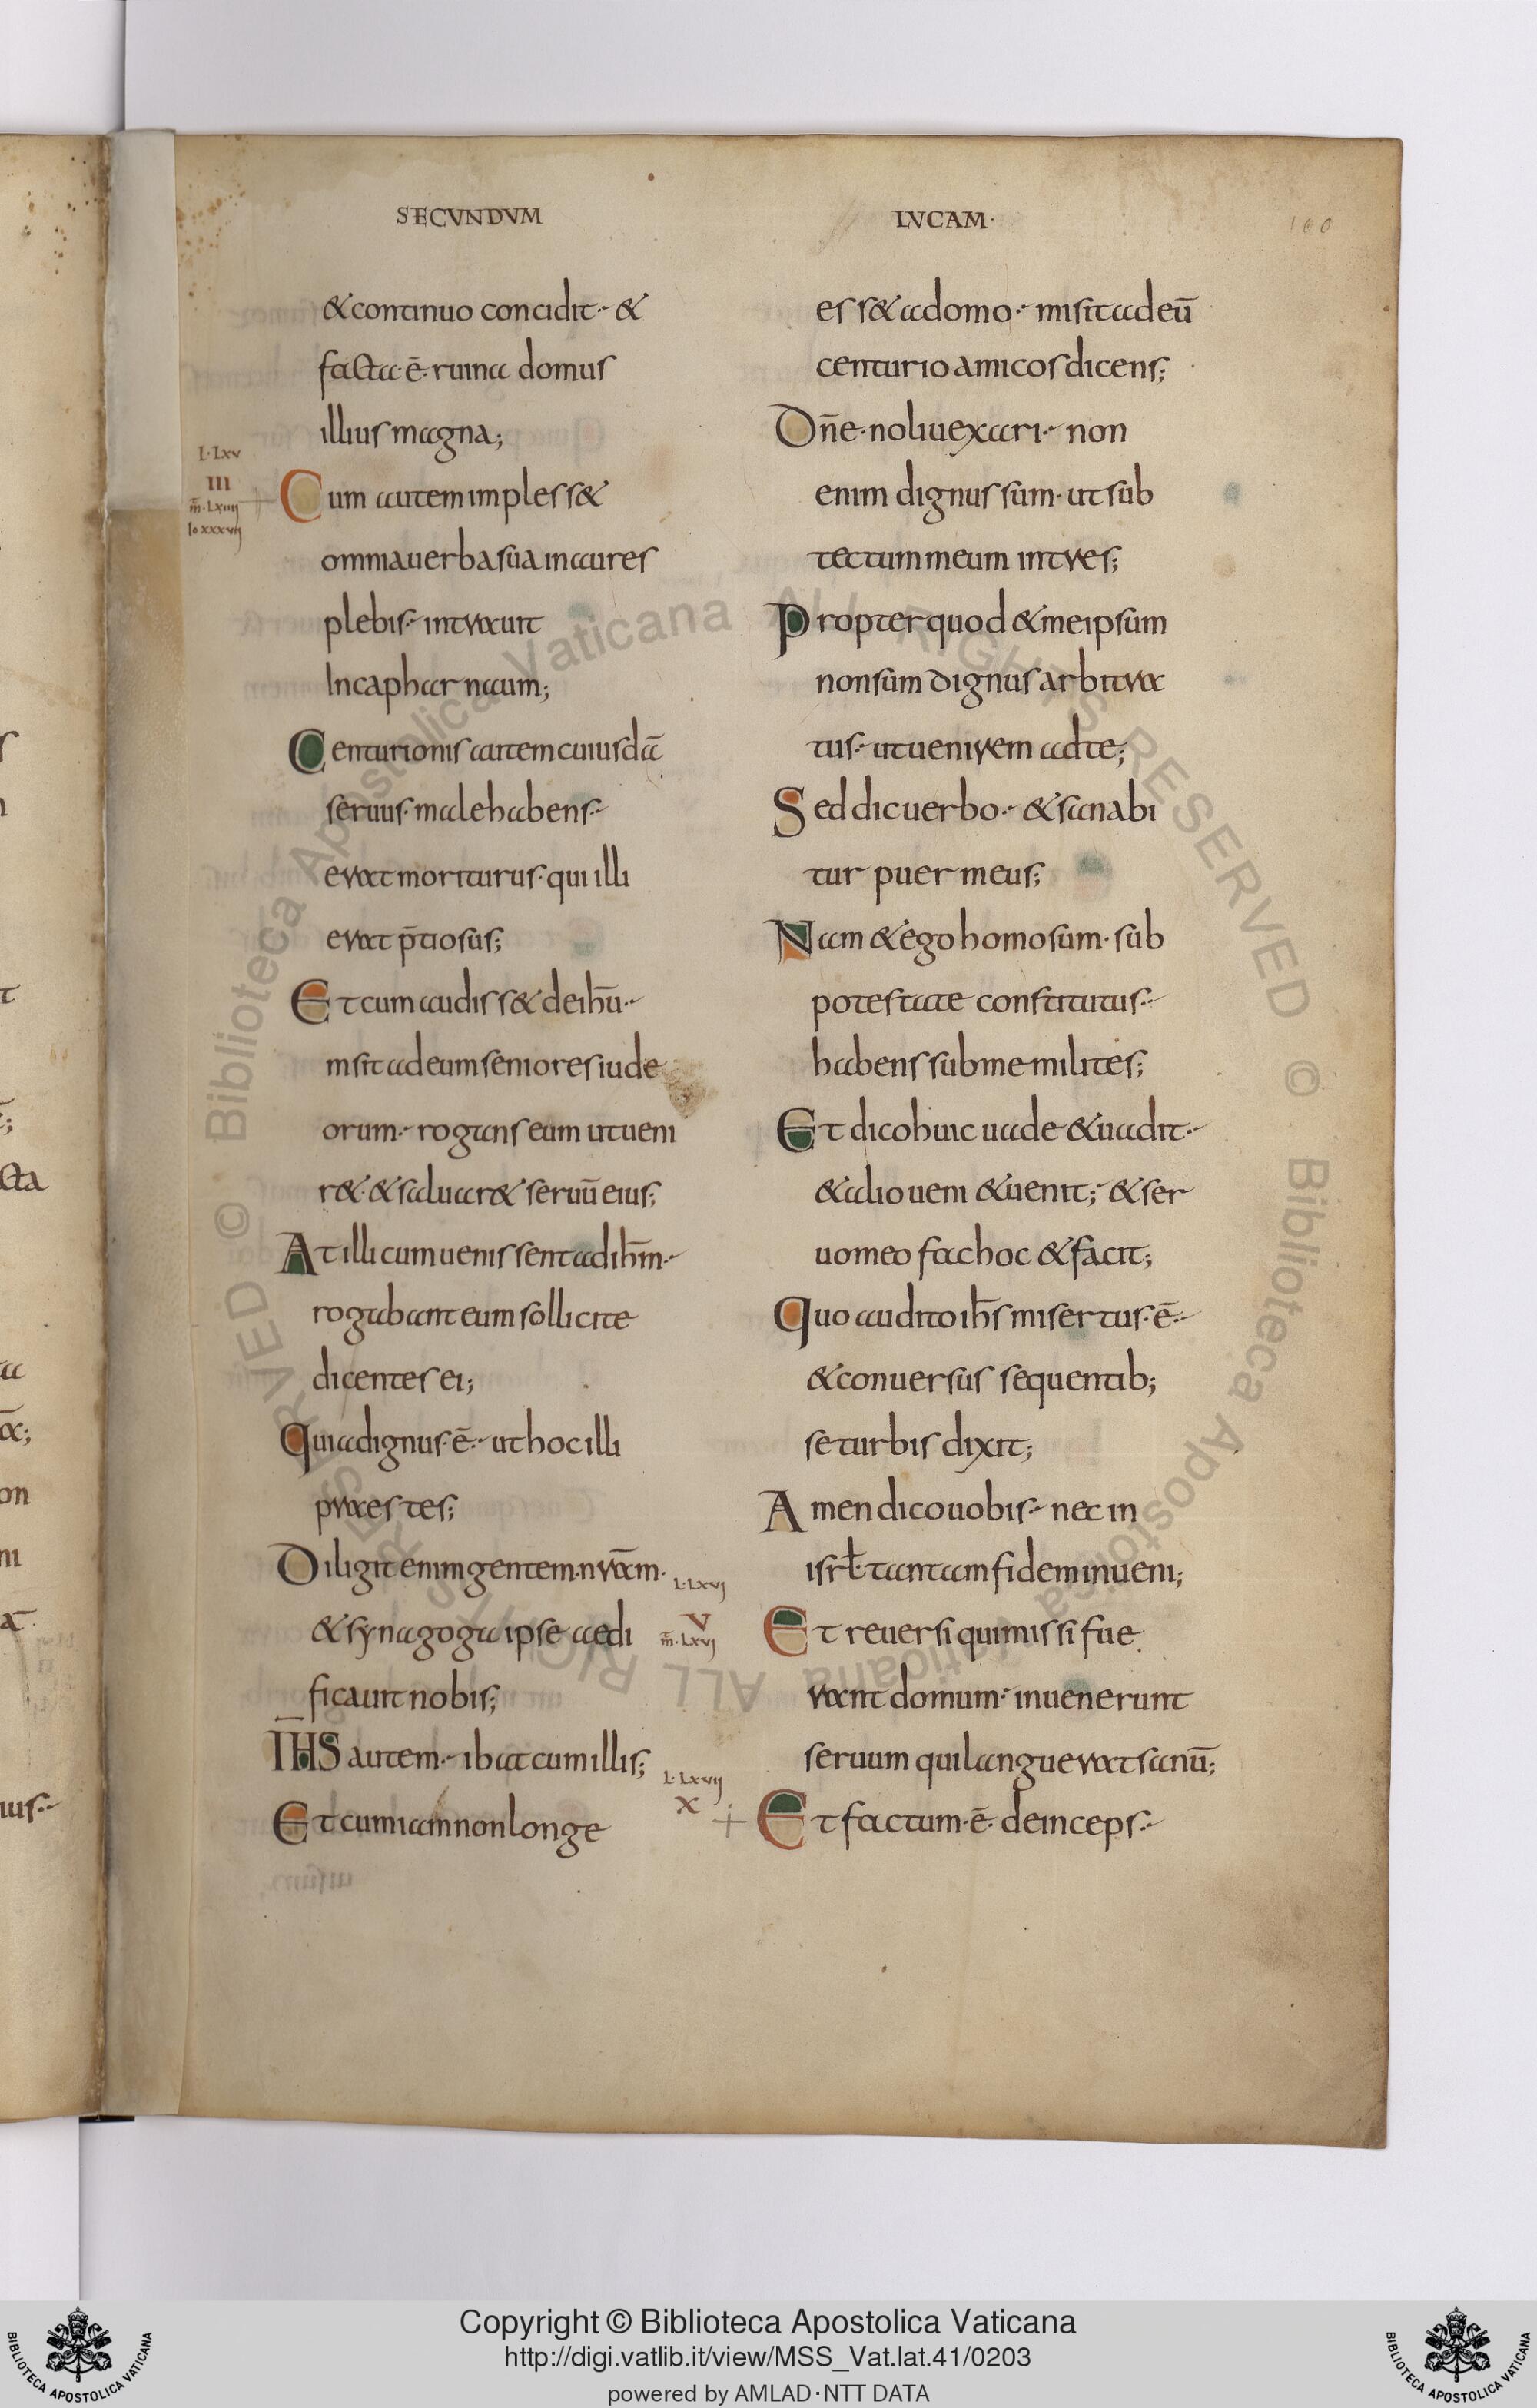 SECVNDVM
& continuo concidit & 
facta ē ruina domus
illius magna;
L·Lxv
III
m̄·Lxiiii
Io xxxvii
Cum autem impless&
omnia uerba sua in aures
plebis intrauit
In capharnaum;
Centurionis autem cuiusdā
seruus male habens
erat moriturus· qui illi
erat p̄tiosus;
Et cum audiss& de ih̄u
msit ad eum seniores iude
orum rogans eum ut ueni
r& & saluar& seruū eius;
At illi cum uenissent ad ih̄m
rogabant eum sollicite
dicentes ei;
Quia dignus ē ut hoc illi
praestes;
Diligit enim gentem nr̄am·
& synagoga ipse aedi
ficauit nobis;
IH̄S autem ibat cum illis;
Et cum iam non longe
L·Lxvi
v
m̄·Lxvi
L·Lxvii
x
LVCAM·
100
ess& a domo misit ad eū
centurio amicos dicens;
Dn̄e· noli uexari non
enim dignus sum· ut sub
tectum meum intres;
Propter quod & me ipsum
non sum dignus arbitra
tus ut uenirem ad te;
Sed dic uerbo & sanabi
tur puer meus;
Nam & ego homo sum· sub
potestate constitutus
habens sub me milites;
Et dico huic uade & uadit
& alio ueni & uenit; & ser
uo meo fac hoc & facit;
Quo audito ih̄s misertus ē
& conuersus sequentib;
se turbis dixit;
Amen dico uobis nec in
isrł· tantam fidem inueni;
Et reuersi qui missi fue
rant domum inuenerunt
seruum qui languerat sanū;
Et factum ē· deinceps
Copyright © Biblioteca Apostolica Vaticana
http://digi.vatlib.it/view/MSS_Vat.lat.41/0203
powered by AMLAD·NTT DATA
BIBLIOTECA APOSTOLICA VATICANA
BIBLIOTECA APOSTOLICA VATICANA
© Biblioteca Apostolica Vaticana ALL RIGHTS RESERVED © Biblioteca Apostolica Vaticana ALL RIGHTS RESERVED